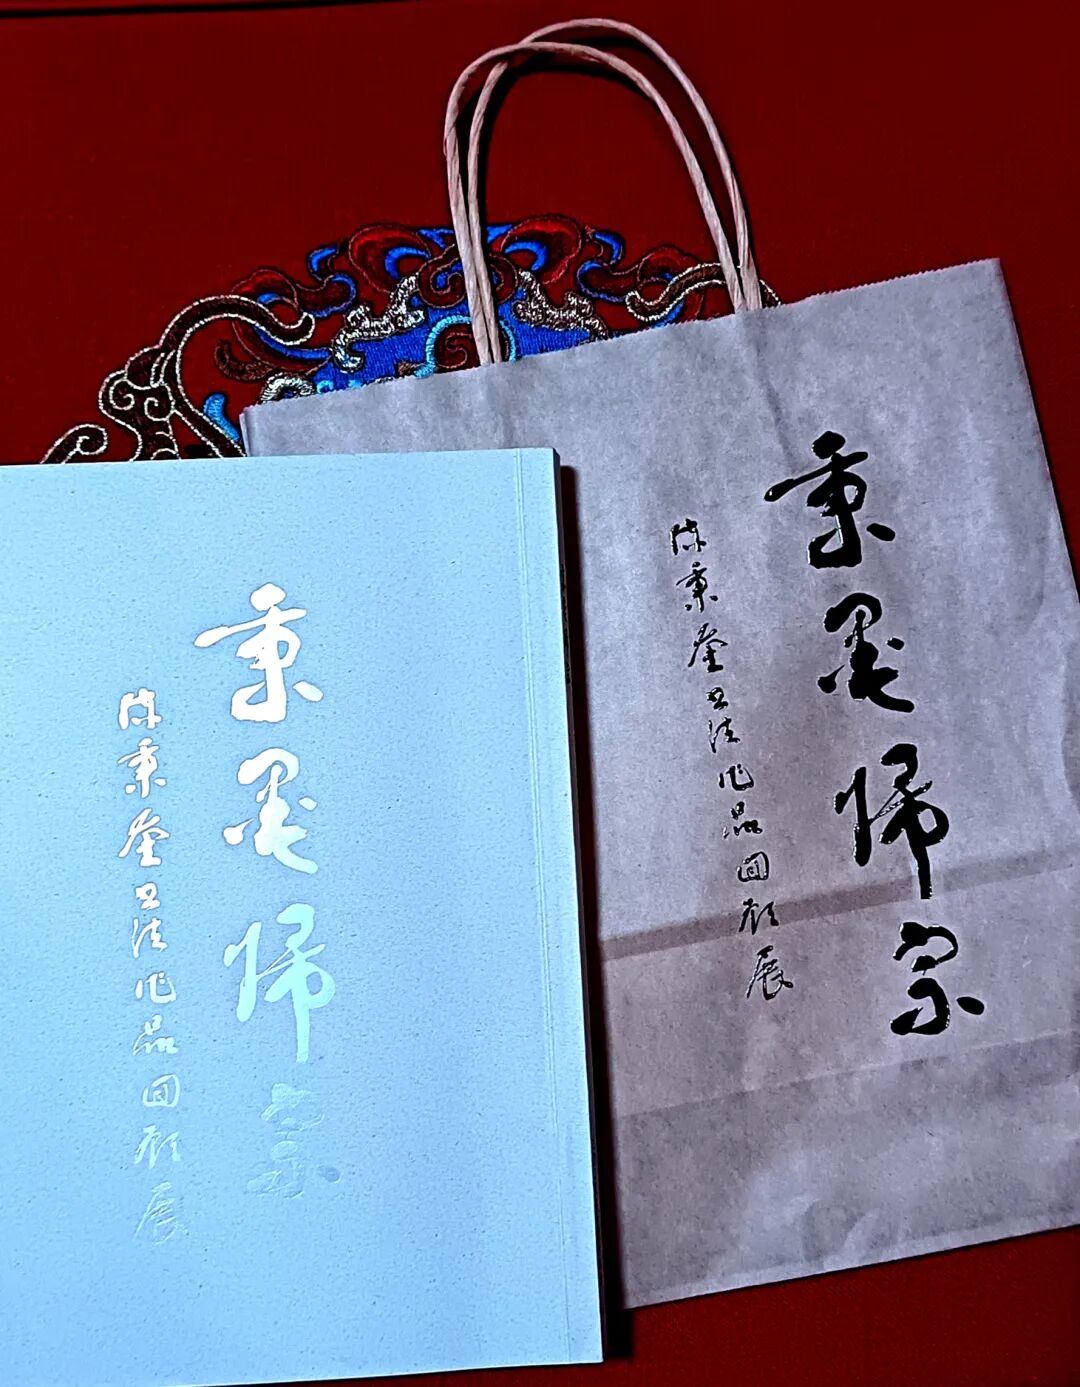 秉墨歸宗
陈秉奎书法作品回顾展
秉墨歸宗
陈秉奎书法作品回顾展